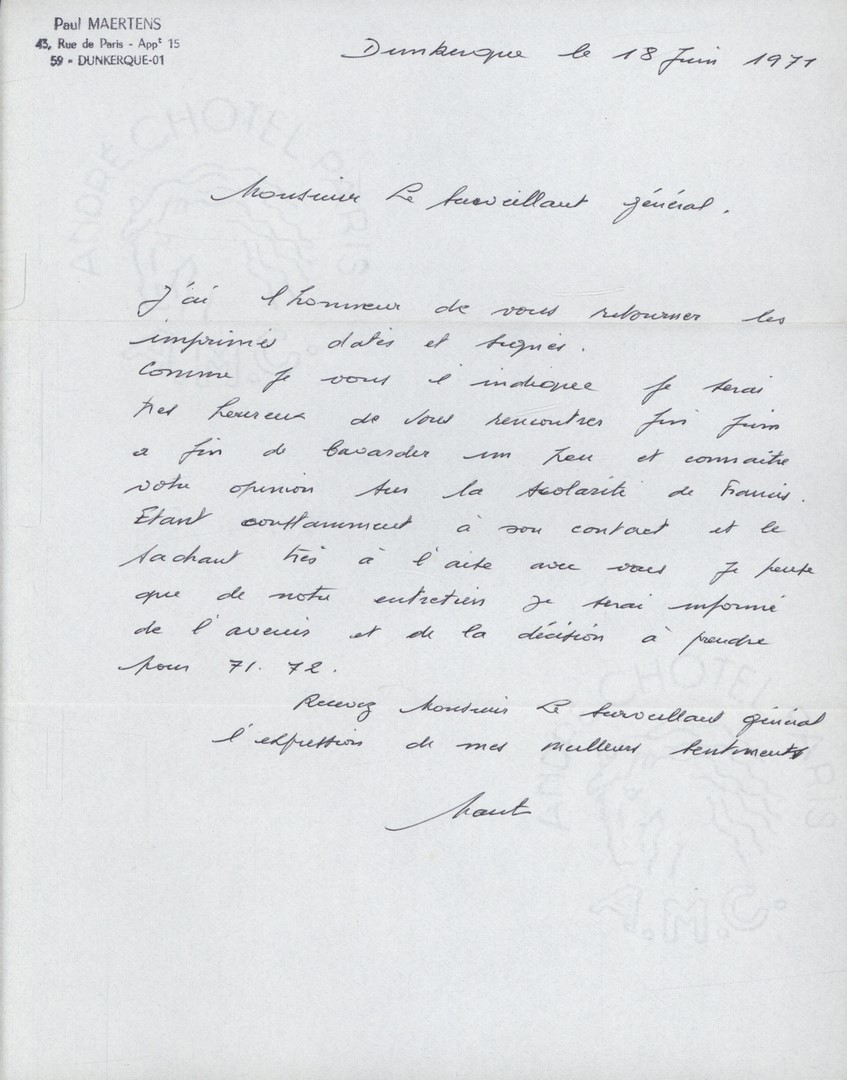 Paul MAERTENS
43, Rue de Paris - Appt 15
59 - DUNKERQUE-01
Dunkerque le 18 Juin 1971
ANDRÉ CHOTEL PARIS
Monsieur Le Surveillant général.
J'ai l'honneur de vous retourner les
imprimés datés et signés.
Comme je vous l'indique je serai
très heureux de vous rencontrer fin juin
a fin de bavarder un peu et connaître
votre opinion sur la scolarité de Francis.
Etant constamment à son contact et le
sachant très à l'aise avec vous je pense
que de notre entretien je serai informé
de l'avenir et de la décision à prendre
pour 71.72.
Recevez Monsieur Le Surveillant général
l'expression de mes meilleurs sentiments
ANDRÉ CHOTEL PARIS